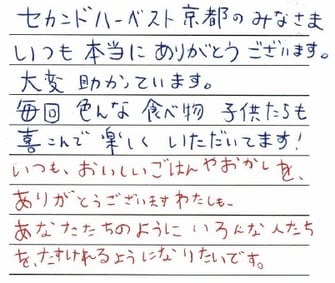 セカンドハーベスト京都のみなさま
いつも本当にありがとうございます。
大変助かっています。
毎回色んな食べ物子供たちも
喜こんで楽しくいただいてます!
いつも、おいしいごはんやおかしを、
ありがとうございますわたしも、
あなたたちのようにいろんな人たち
を、たすけれるようになりたいです。